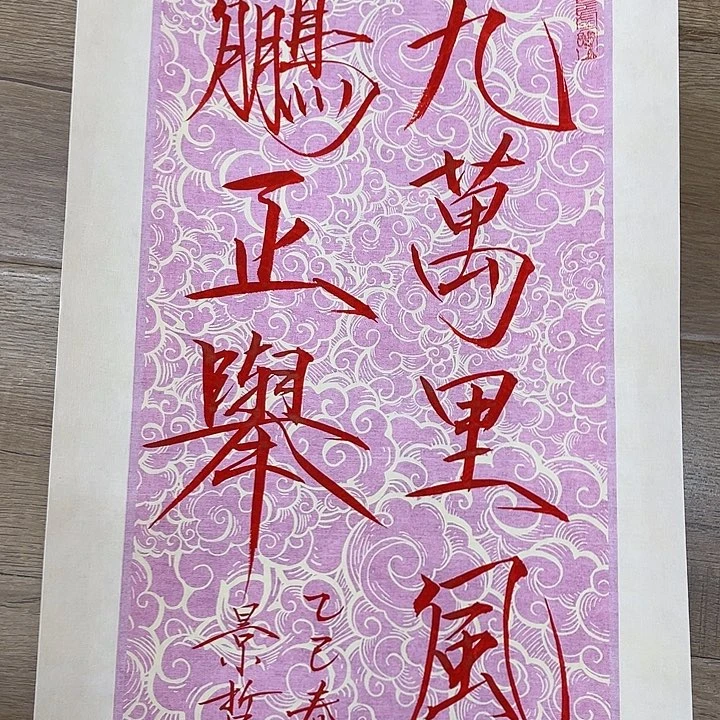 九萬里風
鵬正舉
乙巳春
景哲